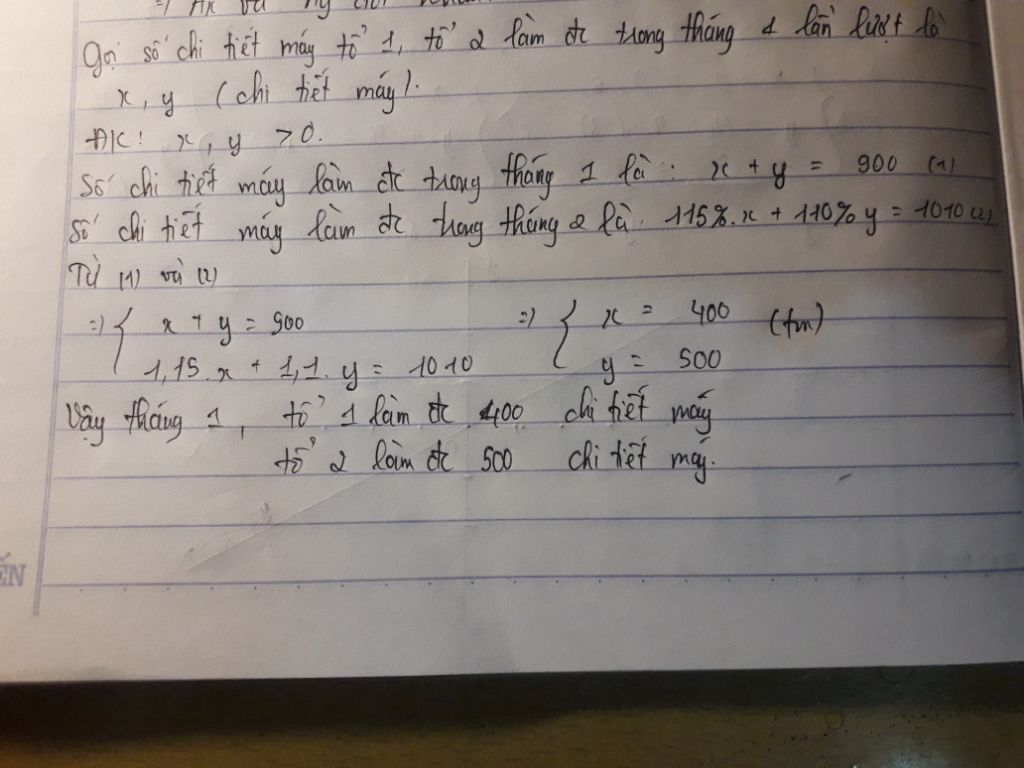 Gọi số chi tiết máy tổ 1, tổ 2 làm đc trong tháng 1 lần lượt là
x, y (chi tiết máy).
ĐK: x, y > 0.
Số chi tiết máy làm đc trong tháng 1 là: x + y = 900 (1)
Số chi tiết máy làm đc trong tháng 2 là: 115%.x + 110% y = 1010 (2)
Từ (1) và (2)
=> { x + y = 900 => { x = 400 (tm)
1,15.x + 1,1.y = 1010 y = 500
Vậy tháng 1, tổ 1 làm đc 400 chi tiết máy
tổ 2 làm đc 500 chi tiết máy.
ẾN